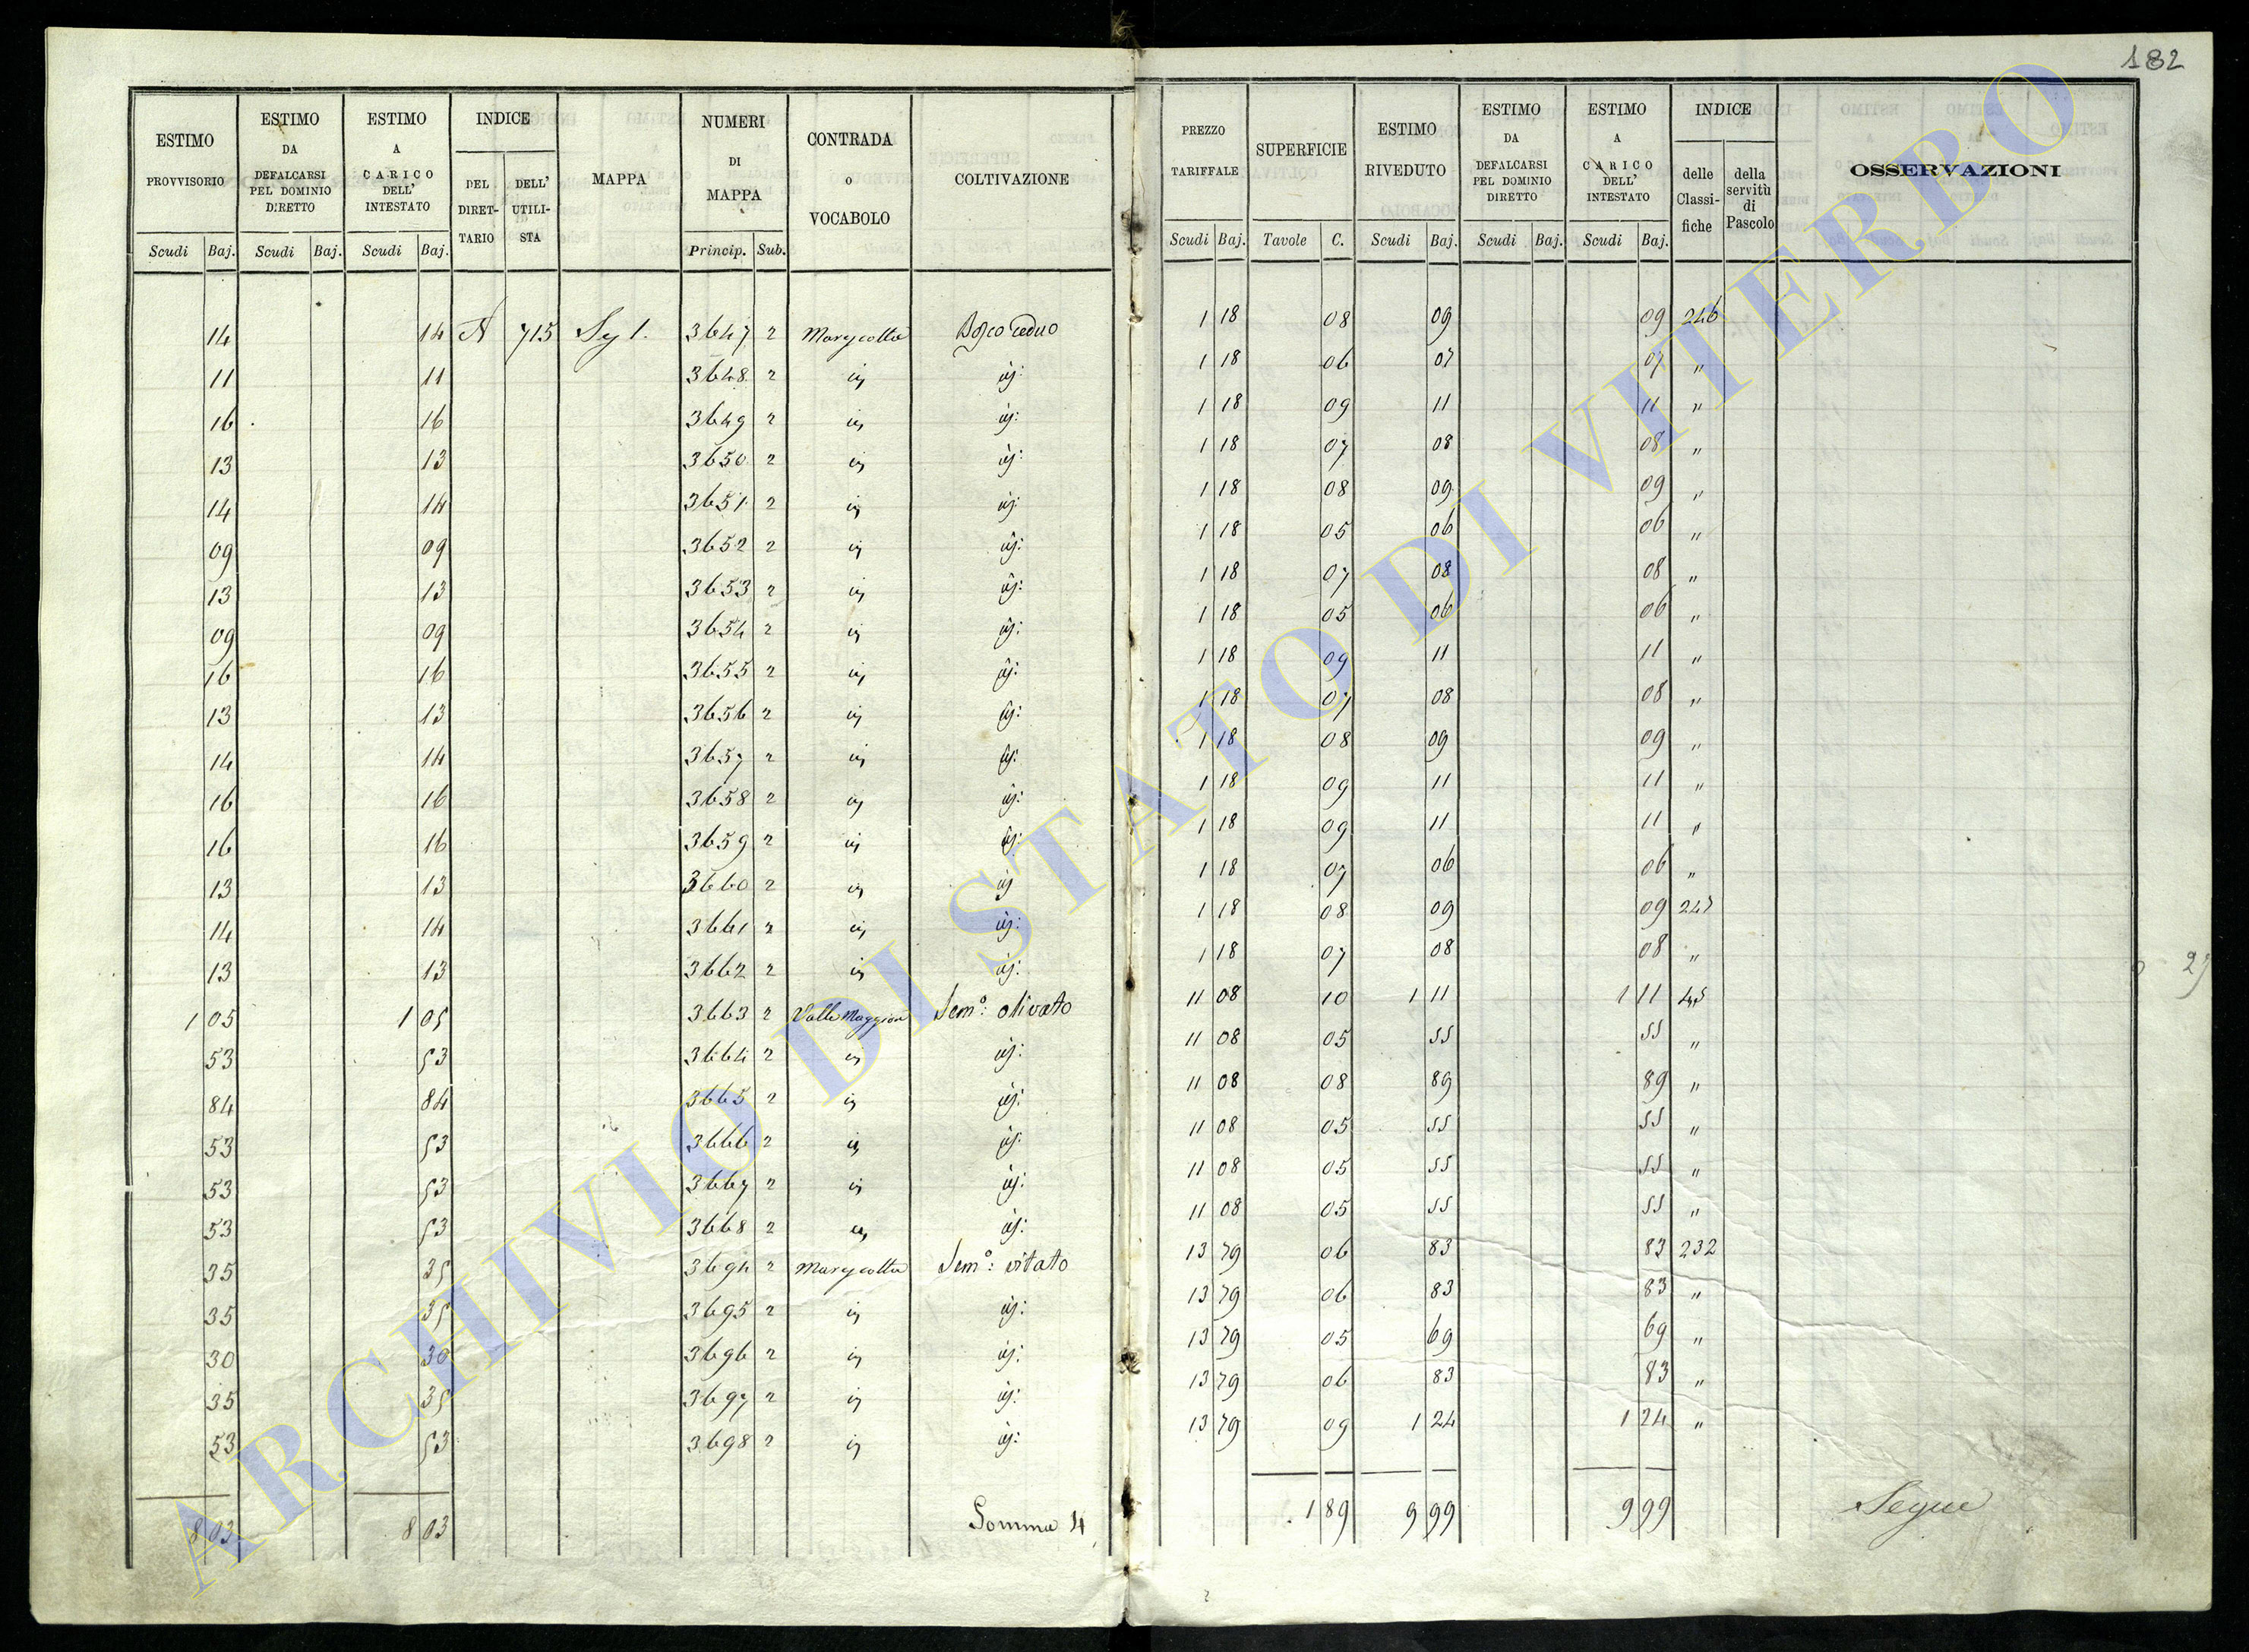 182
ESTIMO PROVVISORIO | ESTIMO DA DEFALCARSI PEL DOMINIO DIRETTO | ESTIMO A CARICO DELL' INTESTATO | INDICE DEL DIRET-TARIO | DELL' UTILI-STA | MAPPA | NUMERI DI MAPPA | CONTRADA o VOCABOLO | COLTIVAZIONE | PREZZO TARIFFALE | SUPERFICIE | ESTIMO RIVEDUTO | ESTIMO DA DEFALCARSI PEL DOMINIO DIRETTO | ESTIMO A CARICO DELL' INTESTATO | INDICE delle Classi-fiche | della servitù di Pascolo | OSSERVAZIONI
Scudi | Baj. | Scudi | Baj. | Scudi | Baj. | Princip. | Sub. | Scudi | Baj. | Tavole | C. | Scudi | Baj. | Scudi | Baj. | Scudi | Baj.
14 | 14 | A | 715 | Sg 1. | 3647 | 2 | Marycotta | Bosco ceduo | 1 18 | 08 | 09 | 09 | 246
11 | 11 | 3648 | 2 | id | id: | 1 18 | 06 | 07 | 07 | "
16 | 16 | 3649 | 2 | id | id: | 1 18 | 09 | 11 | 11 | "
13 | 13 | 3650 | 2 | id | id: | 1 18 | 07 | 08 | 08 | "
14 | 14 | 3651 | 2 | id | id: | 1 18 | 08 | 09 | 09 | "
09 | 09 | 3652 | 2 | id | id: | 1 18 | 05 | 06 | 06 | "
13 | 13 | 3653 | 2 | id | id: | 1 18 | 07 | 08 | 08 | "
09 | 09 | 3654 | 2 | id | id: | 1 18 | 05 | 06 | 06 | "
16 | 16 | 3655 | 2 | id | id: | 1 18 | 09 | 11 | 11 | "
13 | 13 | 3656 | 2 | id | id: | 1 18 | 07 | 08 | 08 | "
14 | 14 | 3657 | 2 | id | id: | 1 18 | 08 | 09 | 09 | "
16 | 16 | 3658 | 2 | id | id: | 1 18 | 09 | 11 | 11 | "
16 | 16 | 3659 | 2 | id | id: | 1 18 | 09 | 11 | 11 | "
13 | 13 | 3660 | 2 | id | id | 1 18 | 07 | 06 | 06 | "
14 | 14 | 3661 | 2 | id | id: | 1 18 | 08 | 09 | 09 | 247
13 | 13 | 3662 | 2 | id | id: | 1 18 | 07 | 08 | 08 | "
1 05 | 1 05 | 3663 | 2 | Valle Maggiore | Sem.o: olivato | 11 08 | 10 | 1 11 | 1 11 | 445
53 | 53 | 3664 | 2 | id | id: | 11 08 | 05 | 55 | 55 | "
84 | 84 | 3665 | 2 | id | id: | 11 08 | 08 | 89 | 89 | "
53 | 53 | 3666 | 2 | id | id: | 11 08 | 05 | 55 | 55 | "
53 | 53 | 3667 | 2 | id | id: | 11 08 | 05 | 55 | 55 | "
53 | 53 | 3668 | 2 | id | id: | 11 08 | 05 | 55 | 55 | "
35 | 35 | 3694 | 2 | Marycotta | Sem.o: vitato | 13 79 | 06 | 83 | 83 | 232
35 | 35 | 3695 | 2 | id | id: | 13 79 | 06 | 83 | 83 | "
30 | 30 | 3696 | 2 | id | id: | 13 79 | 05 | 69 | 69 | "
35 | 35 | 3697 | 2 | id | id: | 13 79 | 06 | 83 | 83 | "
53 | 53 | 3698 | 2 | id | id: | 13 79 | 09 | 1 24 | 1 24 | "
8 03 | 8 03 | Somma 4 | 1 89 | 9 99 | 9 99 | Segue
ARCHIVIO DI STATO DI VITERBO